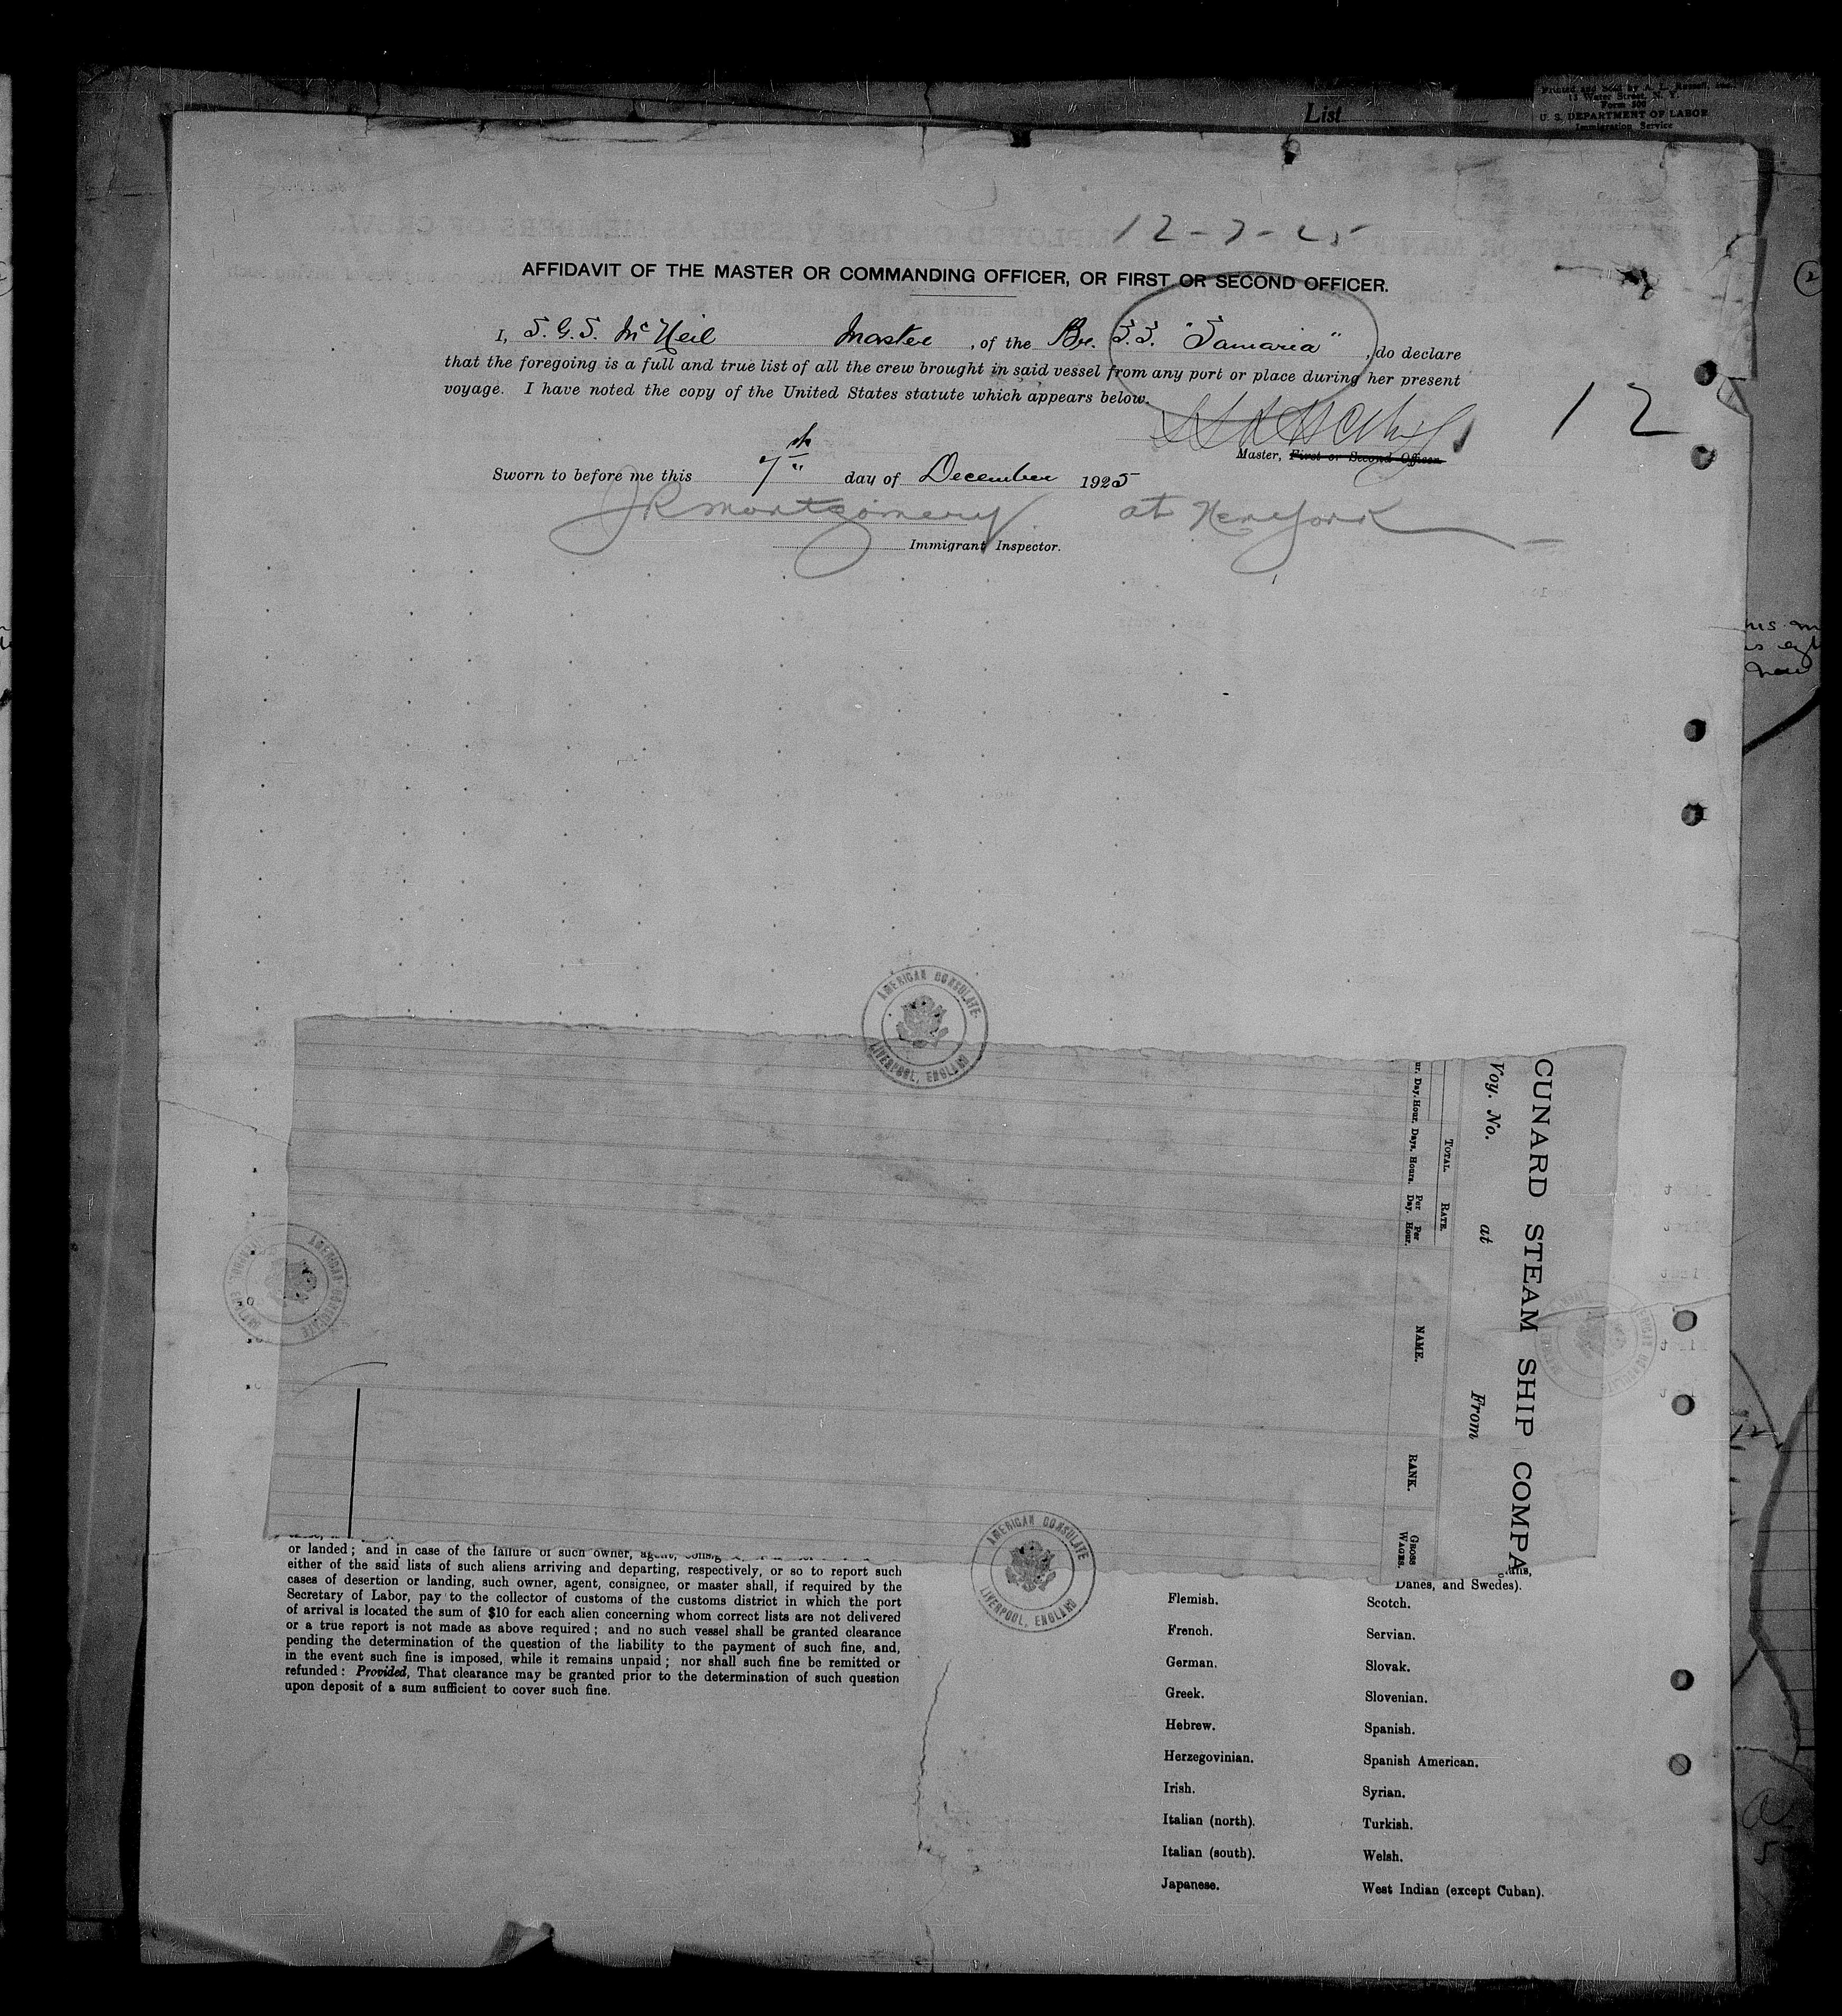 List
Printed and Sold by A. L. Russell, Inc.
15 Water Street, N. Y.
Form 500
U. S. DEPARTMENT OF LABOR
Immigration Service
12-7-25
AFFIDAVIT OF THE MASTER OR COMMANDING OFFICER, OR FIRST OR SECOND OFFICER.
I, S. G. S. McNeil Master, of the Br. S.S. "Samaria", do declare
that the foregoing is a full and true list of all the crew brought in said vessel from any port or place during her present
voyage. I have noted the copy of the United States statute which appears below.
12
Master, First or Second Officer.
Sworn to before me this 7th day of December 1925
JR Montgomery at New York
Immigrant Inspector.
AMERICAN CONSULATE
LIVERPOOL, ENGLAND
CUNARD STEAM SHIP COMPA
Voy. No. at From
TOTAL. RATE.
ur. Day. Hour. Days. Hours. Per Day. Per Hour. NAME. RANK. GROSS WAGES.
AMERICAN CONSULATE
AMERICAN CONSULATE
LIVERPOOL, ENGLAND
or landed; and in case of the failure of such owner, agent,
either of the said lists of such aliens arriving and departing, respectively, or so to report such
cases of desertion or landing, such owner, agent, consignee, or master shall, if required by the
Secretary of Labor, pay to the collector of customs of the customs district in which the port
of arrival is located the sum of $10 for each alien concerning whom correct lists are not delivered
or a true report is not made as above required; and no such vessel shall be granted clearance
pending the determination of the question of the liability to the payment of such fine, and,
in the event such fine is imposed, while it remains unpaid; nor shall such fine be remitted or
refunded: Provided, That clearance may be granted prior to the determination of such question
upon deposit of a sum sufficient to cover such fine.
Danes, and Swedes).
Flemish. Scotch.
French. Servian.
German. Slovak.
Greek. Slovenian.
Hebrew. Spanish.
Herzegovinian. Spanish American.
Irish. Syrian.
Italian (north). Turkish.
Italian (south). Welsh.
Japanese. West Indian (except Cuban).